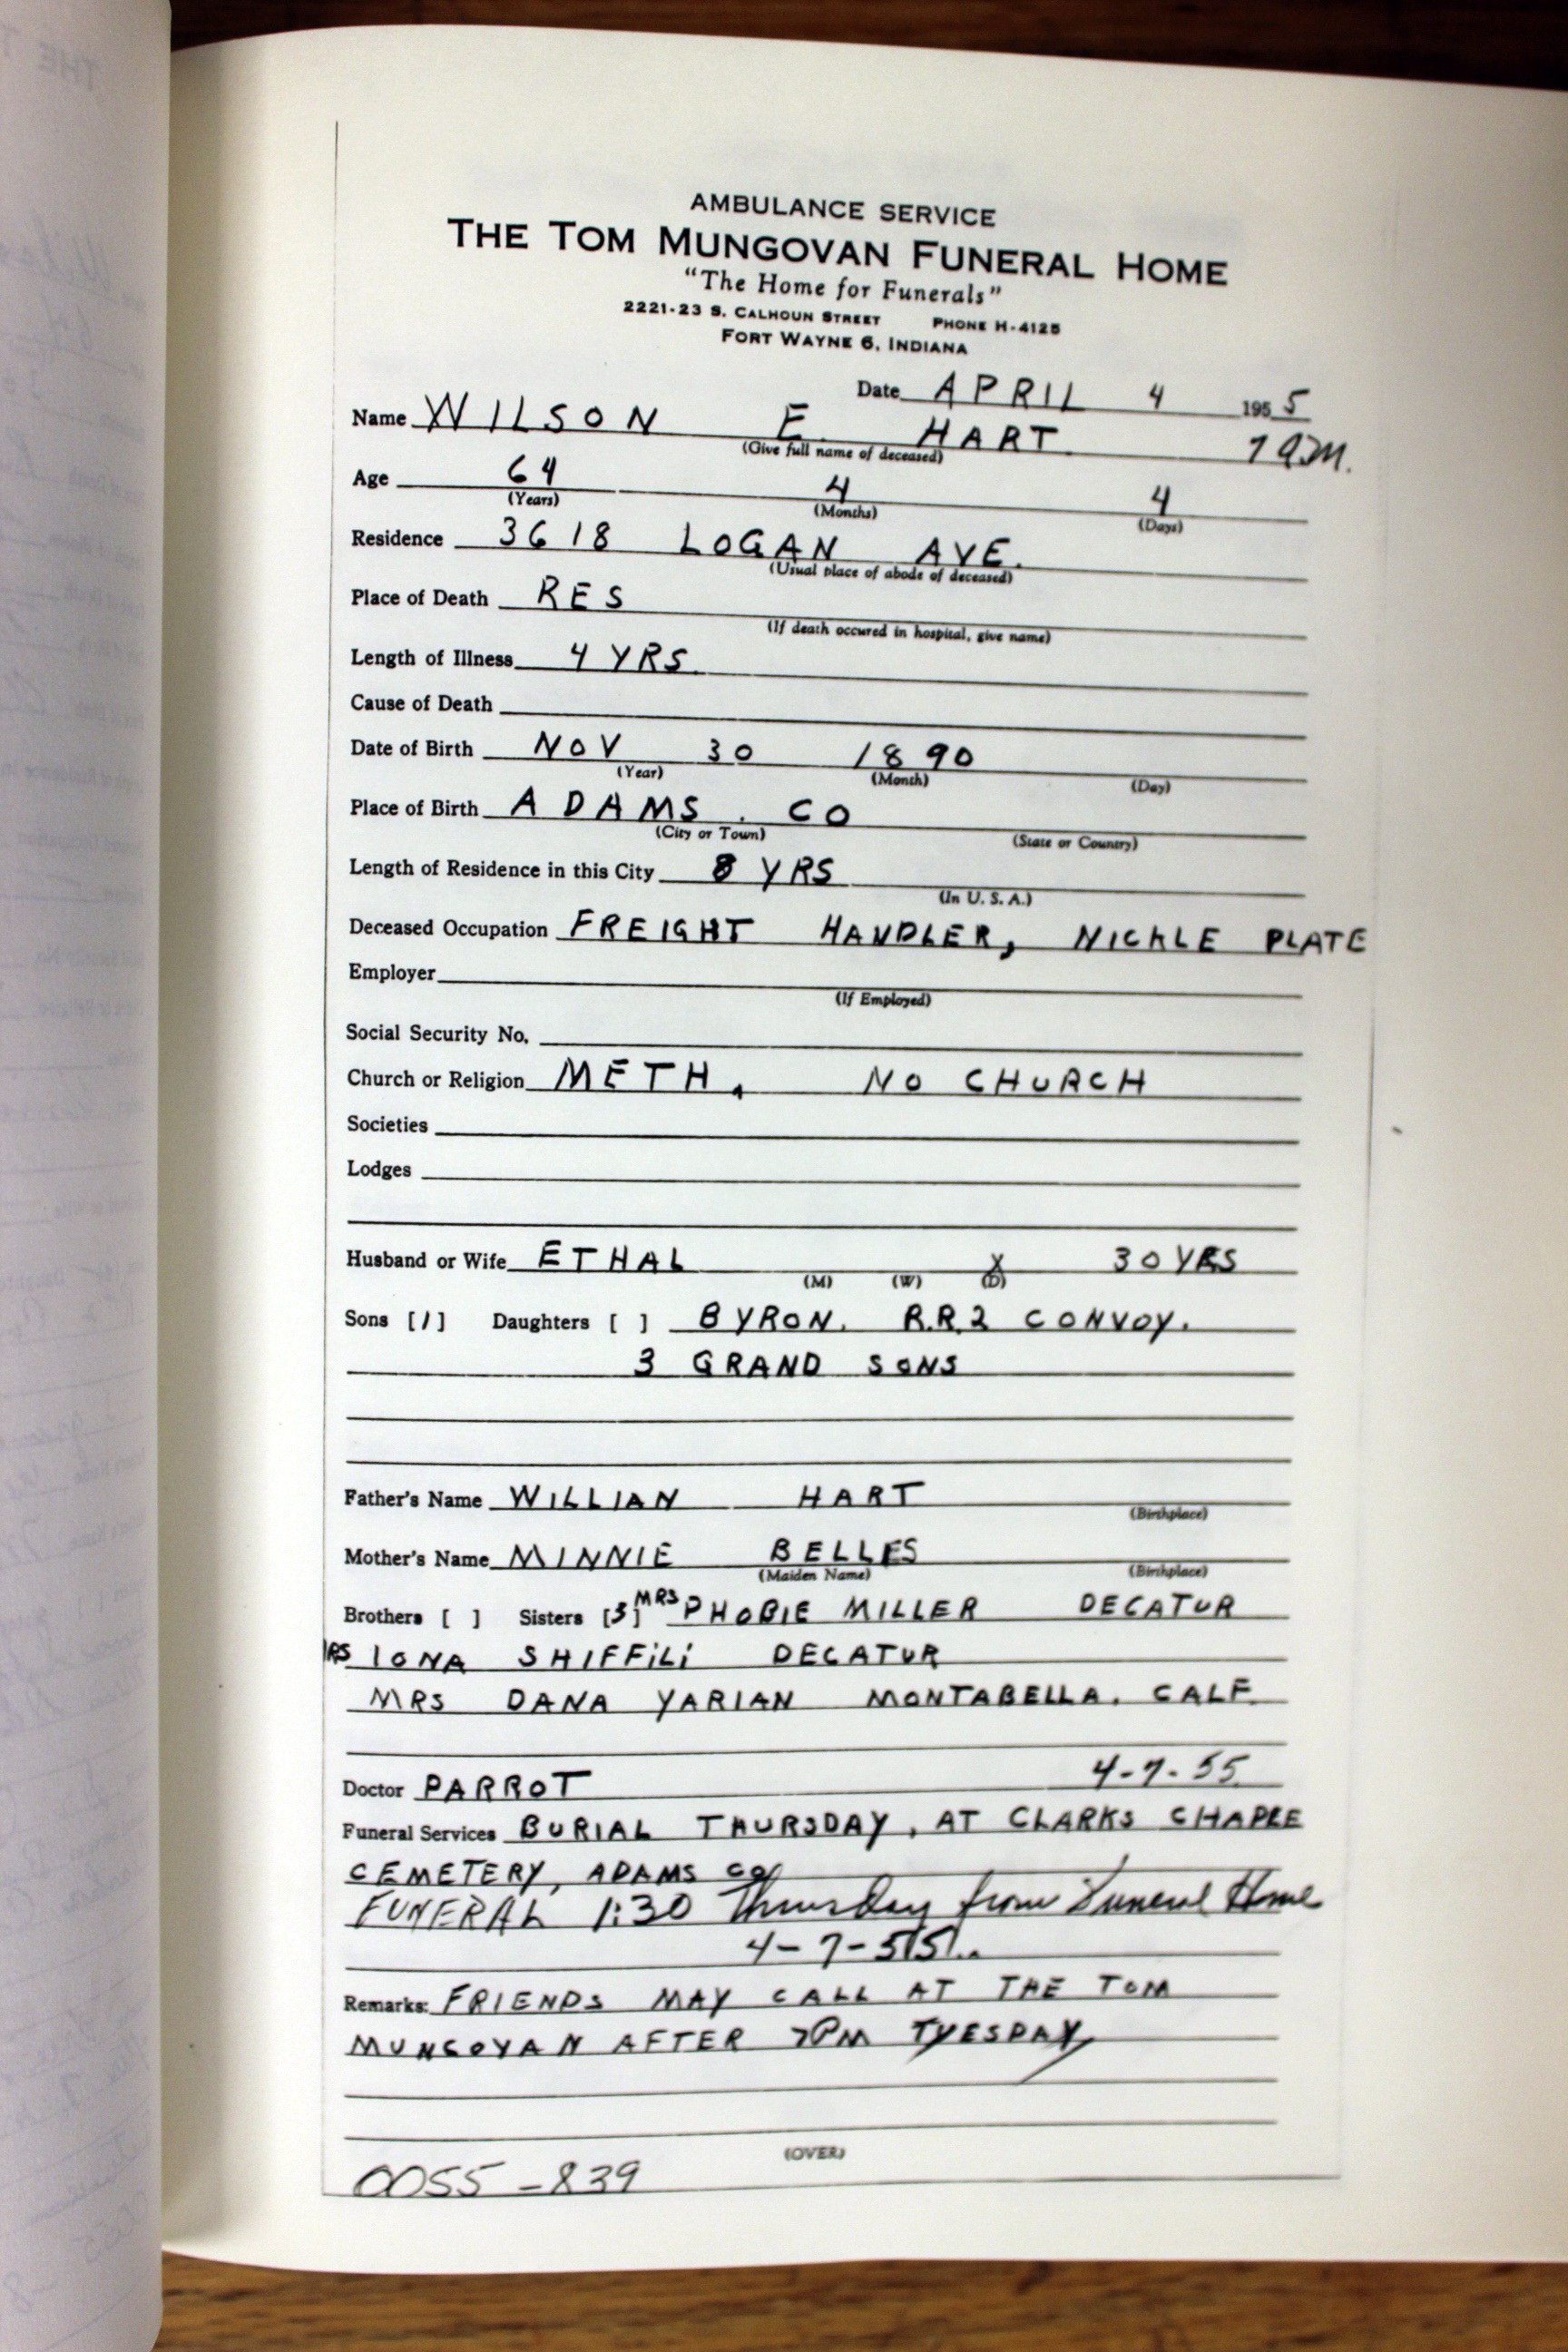 AMBULANCE SERVICE
THE TOM MUNGOVAN FUNERAL HOME
"The Home for Funerals"
2221-23 S. CALHOUN STREET PHONE H-4125
FORT WAYNE 6, INDIANA
Date APRIL 4 1955
Name WILSON E. HART 7 am.
(Give full name of deceased)
Age 64 4 4
(Years) (Months) (Days)
Residence 3618 LOGAN AVE.
(Usual place of abode of deceased)
Place of Death RES
(If death occured in hospital, give name)
Length of Illness 4 YRS.
Cause of Death
Date of Birth NOV 30 1890
(Year) (Month) (Day)
Place of Birth ADAMS. CO
(City or Town) (State or Country)
Length of Residence in this City 8 YRS
(In U. S. A.)
Deceased Occupation FREIGHT HANDLER, NICKLE PLATE
Employer
(If Employed)
Social Security No.
Church or Religion METH. NO CHURCH
Societies
Lodges
Husband or Wife ETHAL X 30 YRS
(M) (W) (D)
Sons [1] Daughters [ ] BYRON. R.R.2 CONVOY.
3 GRAND SONS
Father's Name WILLIAN HART
(Birthplace)
Mother's Name MINNIE BELLES
(Maiden Name) (Birthplace)
Brothers [ ] Sisters [3] MRS PHOBIE MILLER DECATUR
RS IONA SHIFFiLi DECATUR
MRS DANA YARIAN MONTABELLA. CALF.
Doctor PARROT 4-7-55
Funeral Services BURIAL THURSDAY, AT CLARKS CHAPLE
CEMETERY, ADAMS CO
FUNERAL 1:30 Thursday from Funeral Home
4-7-55.
Remarks: FRIENDS MAY CALL AT THE TOM
MUNGOVAN AFTER 7PM TUESDAY
(OVER)
0055-839